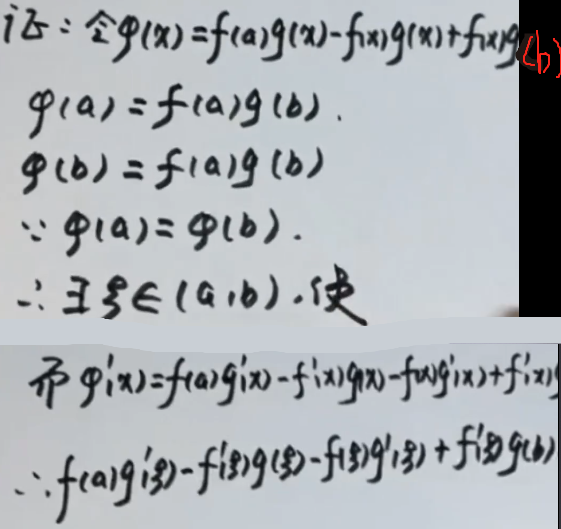 证：令φ(x)=f(a)g(x)-f(x)g(x)+f(x)g(b)
φ(a)=f(a)g(b).
φ(b)=f(a)g(b)
∵φ(a)=φ(b).
∴∃ξ∈(a,b).使
而φ'(x)=f(a)g'(x)-f'(x)g(x)-f(x)g'(x)+f'(x)
∴f(a)g'(ξ)-f'(ξ)g(ξ)-f(ξ)g'(ξ)+f'(ξ)g(b)